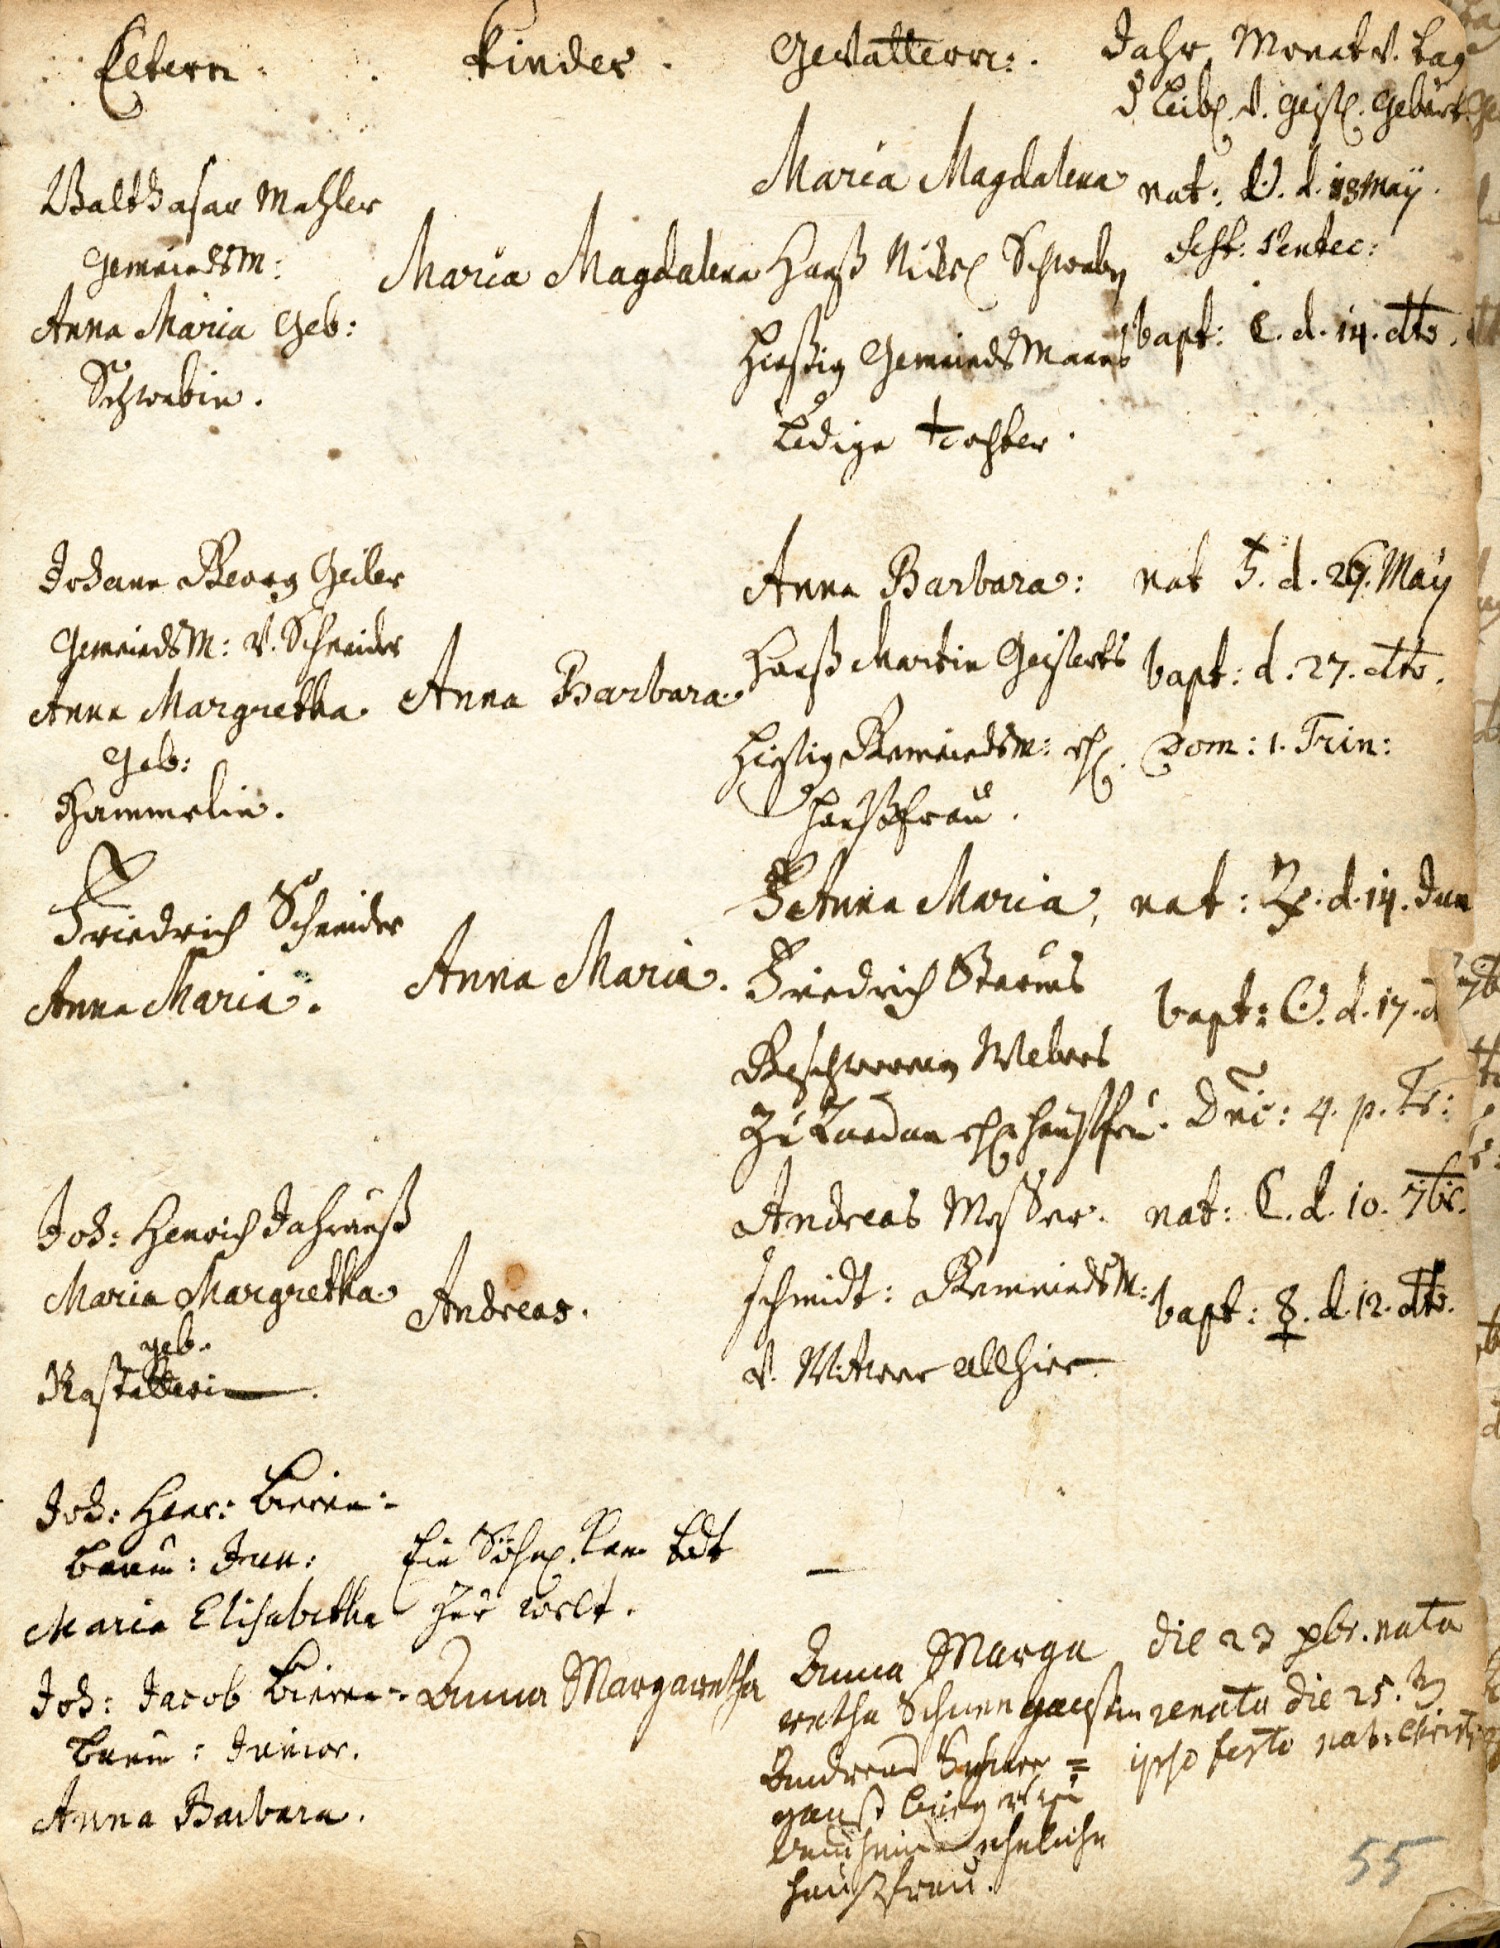 Eltern.
Kinder.
Gevattern:.
Jahr Monat v. tag
d. Leibl. v. Geistl. Geburt
Balthasar Mahler
Gemeinds M:
Anna Maria Geb:
Schwabin.
Maria Magdalena
Maria Magdalena
Hanß Nickel Schwaben
Hießig Gemeinds Manns
Ledige tochter.
nat: ☉. d. 13 May.
Fest: Pentec:
bapt: ☾. d. 14. dto.
Johann Georg Geiler
Gemeinds M: v. Schneider
Anna Margretha
Geb:
Hammelin.
Anna Barbara.
Anna Barbara:
Hanß Martin Geißerts
Hießig Gemeindsm: ehl.
Haußfrau.
nat ♄. d. 26. May
bapt: d. 27. dto.
Dom: 1. Trin:
Friedrich Schneider
Anna Maria.
Anna Maria.
Anna Maria,
Friedrich Sturms
Geschworeng Webers
Zu Landau ehl. Haußfr.
nat: ♃. d. 14. Jun
bapt: ☉. d. 17. d
Dnic: 4. p. Tr:
Joh: Henrich Jahrauß
Maria Margretha
geb.
Rastetterin.
Andreas.
Andreas Messer-
schmidt: Gemeinds M:
v. Witwer allhier.
nat: ☾. d. 10. 7br.
bapt: ☿. d. 12. dto.
Joh: Henr: Bieren-
baum: Jun:
Maria Elisabetha
Ein Söhnl. kam todt
zur welt.
—
Joh: Jacob Bieren-
baum: Junior.
Anna Barbara.
Anna Margaretha
Anna Marga
retha Schnenganstin
Andreas
ganst burger zu
eheliche
haußfrau.
die 23 xbr. nata
renata die 25.
ipso festo nat: Christi
55